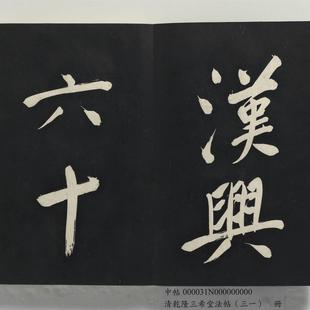 漢興
六十
中帖 000031N000000000
清乾隆三希堂法帖（三一） 冊